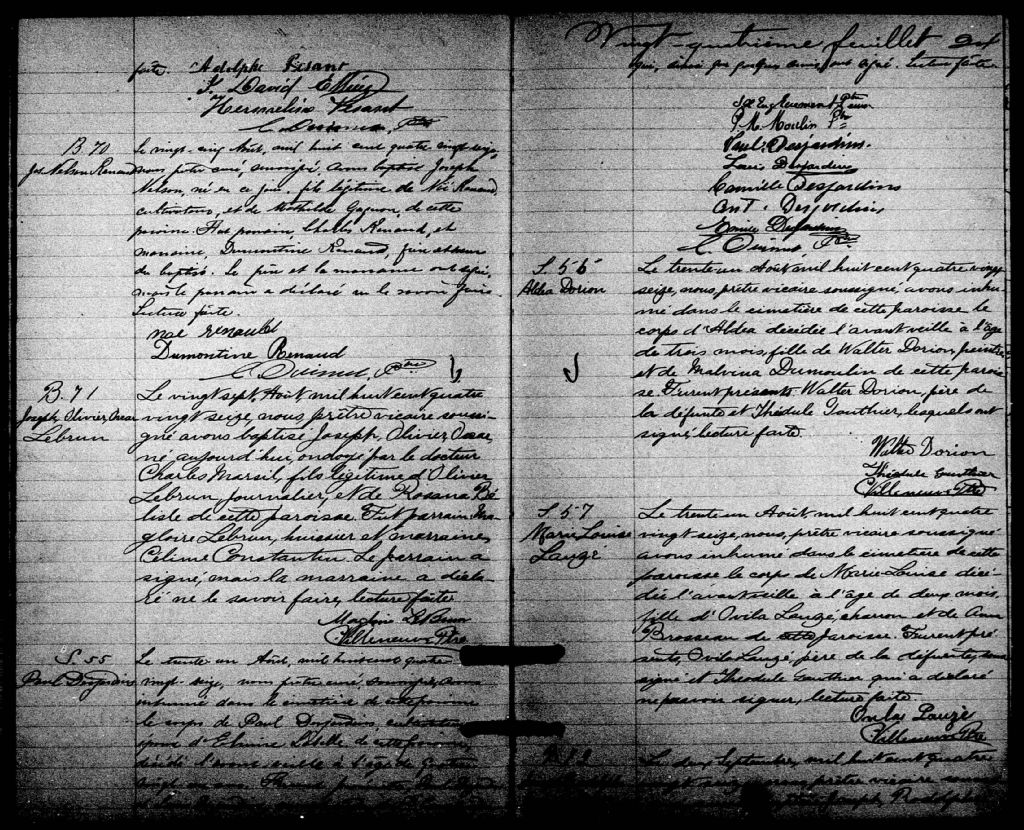 faite. Adolphe Pesant
J. David
Hermeline Pesant
C. Ouimet, Ptre
B. 70
Jos Nelson Renaud
Le vingt-cinq Août, mil huit cent quatre vingt-seize,
nous prêtre curé, soussigné, avons baptisé Joseph
Nelson, né en ce jour, fils légitime de Noé Renaud,
cultivateur, et de Mathilde Gagnon, de cette
paroisse. Fut parrain, Charles Renaud, et
marraine, Dumontine Renaud,
du baptisé. Le père et la marraine ont signé,
mais le parrain a déclaré ne le savoir faire.
Lecture faite.
noé renauld
Dumontine Renaud
C. Ouimet, Ptre
B. 71
Joseph, Olivier, Oscar
Lebrun
Le vingt sept Août mil huit cent quatre
vingt seize, nous, prêtre vicaire soussi-
gné avons baptisé Joseph, Olivier, Oscar
né aujourd'hui, ondoyé par le docteur
Charles Marsil, fils légitime d'Olivier
Lebrun, journalier, et de Rosana Bé-
lisle de cette paroisse. Fut parrain Ma-
gloire Lebrun, huissier et marraine,
Céline Constantin. Le parrain a
signé, mais la marraine a décla-
ré ne le savoir faire, lecture faite
Magloire LeBrun
Villeneuve Ptre
S. 55
Paul Desjardins
Le trente un Août, mil huit cent quatre
vingt-seize, nous prêtre curé, soussigné, avons
inhumé dans le cimetière de cette paroisse
le corps de Paul Desjardins cultivateur
époux d'Elmire Labelle de cette paroisse,
décédé l'avant veille à l'âge de
Vingt-quatrième feuillet 24
qui, ainsi que quelques amis, ont signé. Lecture faite.
P. M. Moulin Ptre
Paul Desjardins.
Louis Desjardins
Camille Desjardins
Ant. Desjardins
Desjardins
C. Ouimet Ptre
S. 56
Aldéa Dorion
Le trente un Août mil huit cent quatre vingt
seize, nous, prêtre vicaire soussigné, avons inhu-
mé dans le cimetière de cette paroisse le
corps d'Aldéa décédée l'avant veille à l'âge
de trois mois, fille de Walter Dorion, peintre
et de Malvina Dumoulin de cette parois-
se. Furent présents Walter Dorion, père de
la défunte et Théodule Gauthier, lesquels ont
signé, lecture faite.
Walter Dorion
Théodule Gauthier
Villeneuve Ptre
S. 57
Marie Louise
Lauzé
Le trente un Août mil huit cent quatre
vingt seize, nous, prêtre vicaire soussigné
avons inhumé dans le cimetière de cette
paroisse le corps de Marie-Louise décé-
dée l'avant veille à l'âge de deux mois,
fille d'Ovila Lauzé, charron et de Anna
Brosseau de cette paroisse. Furent pré-
sents, Ovila Lauzé père de la défunte,
signé et Théodule Gauthier qui a déclaré
ne savoir signer, lecture faite
Ovila Lauzé
Villeneuve Ptre
Le deux Septembre, mil huit cent quatre
vingt seize, nous prêtre vicaire
Joseph Rodolphe